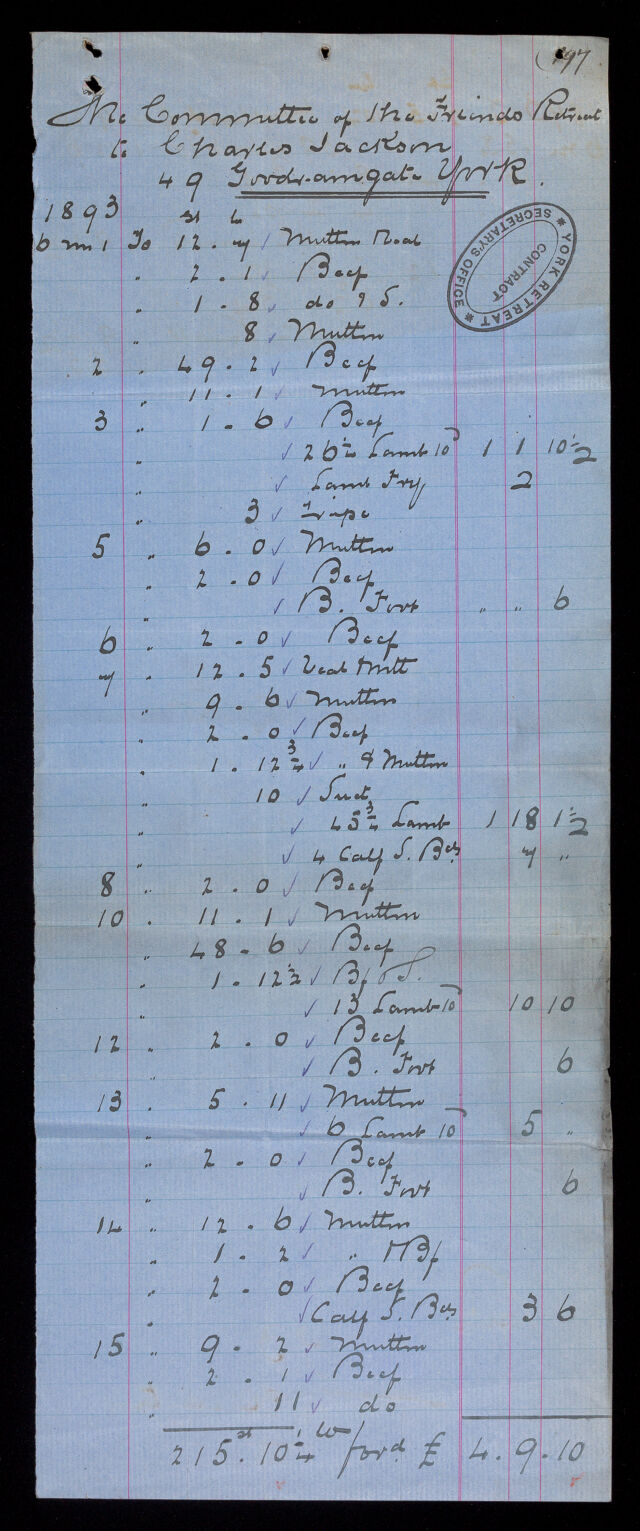 197
The Committee of the Friends Retreat
to Charles Jackson
49 Goodramgate York.
1893 st L
YORK RETREAT
CONTRACT
SECRETARY'S OFFICE
6 mo 1 To 12 . 7 Mutton Veal
" 2 . 1 Beef
" 1 . 8 do & S.
8 Mutton
2 " 49 . 2 Beef
" 11 . 1 Mutton
3 " 1 . 6 Beef
" 26½ Lamb 10 1 1 10½
" Lamb Fry 2
" 3 Tripe
5 " 6 . 0 Mutton
" 2 . 0 Beef
" B. Foot " " 6
6 " 2 . 0 Beef
7 12 . 5 Veal & Mutt
" 9 . 6 Mutton
" 2 . 0 Beef
" 1 . 12¾ " & Mutton
" 10 Suet
" 45¾ Lamb 1 18 1½
" 4 Calf S. Bds 7 "
8 " 2 . 0 Beef
10 " 11 . 1 Mutton
" 48 . 6 Beef
" 1 . 12½ Bf & S.
" 13 Lamb 10 10 10
12 " 2 . 0 Beef
B. Foot 6
13 " 5 . 11 Mutton
" 6 Lamb 10 5 "
" 2 . 0 Beef
" B. Foot 6
14 " 12 . 6 Mutton
" 1 . 2 " & Bf
" 2 . 0 Beef
" Calf S. Bds 3 6
15 " 9 . 2 Mutton
" 2 . 1 Beef
" 11 do
215 st . 10¼ lb ford £ 4 . 9 . 10